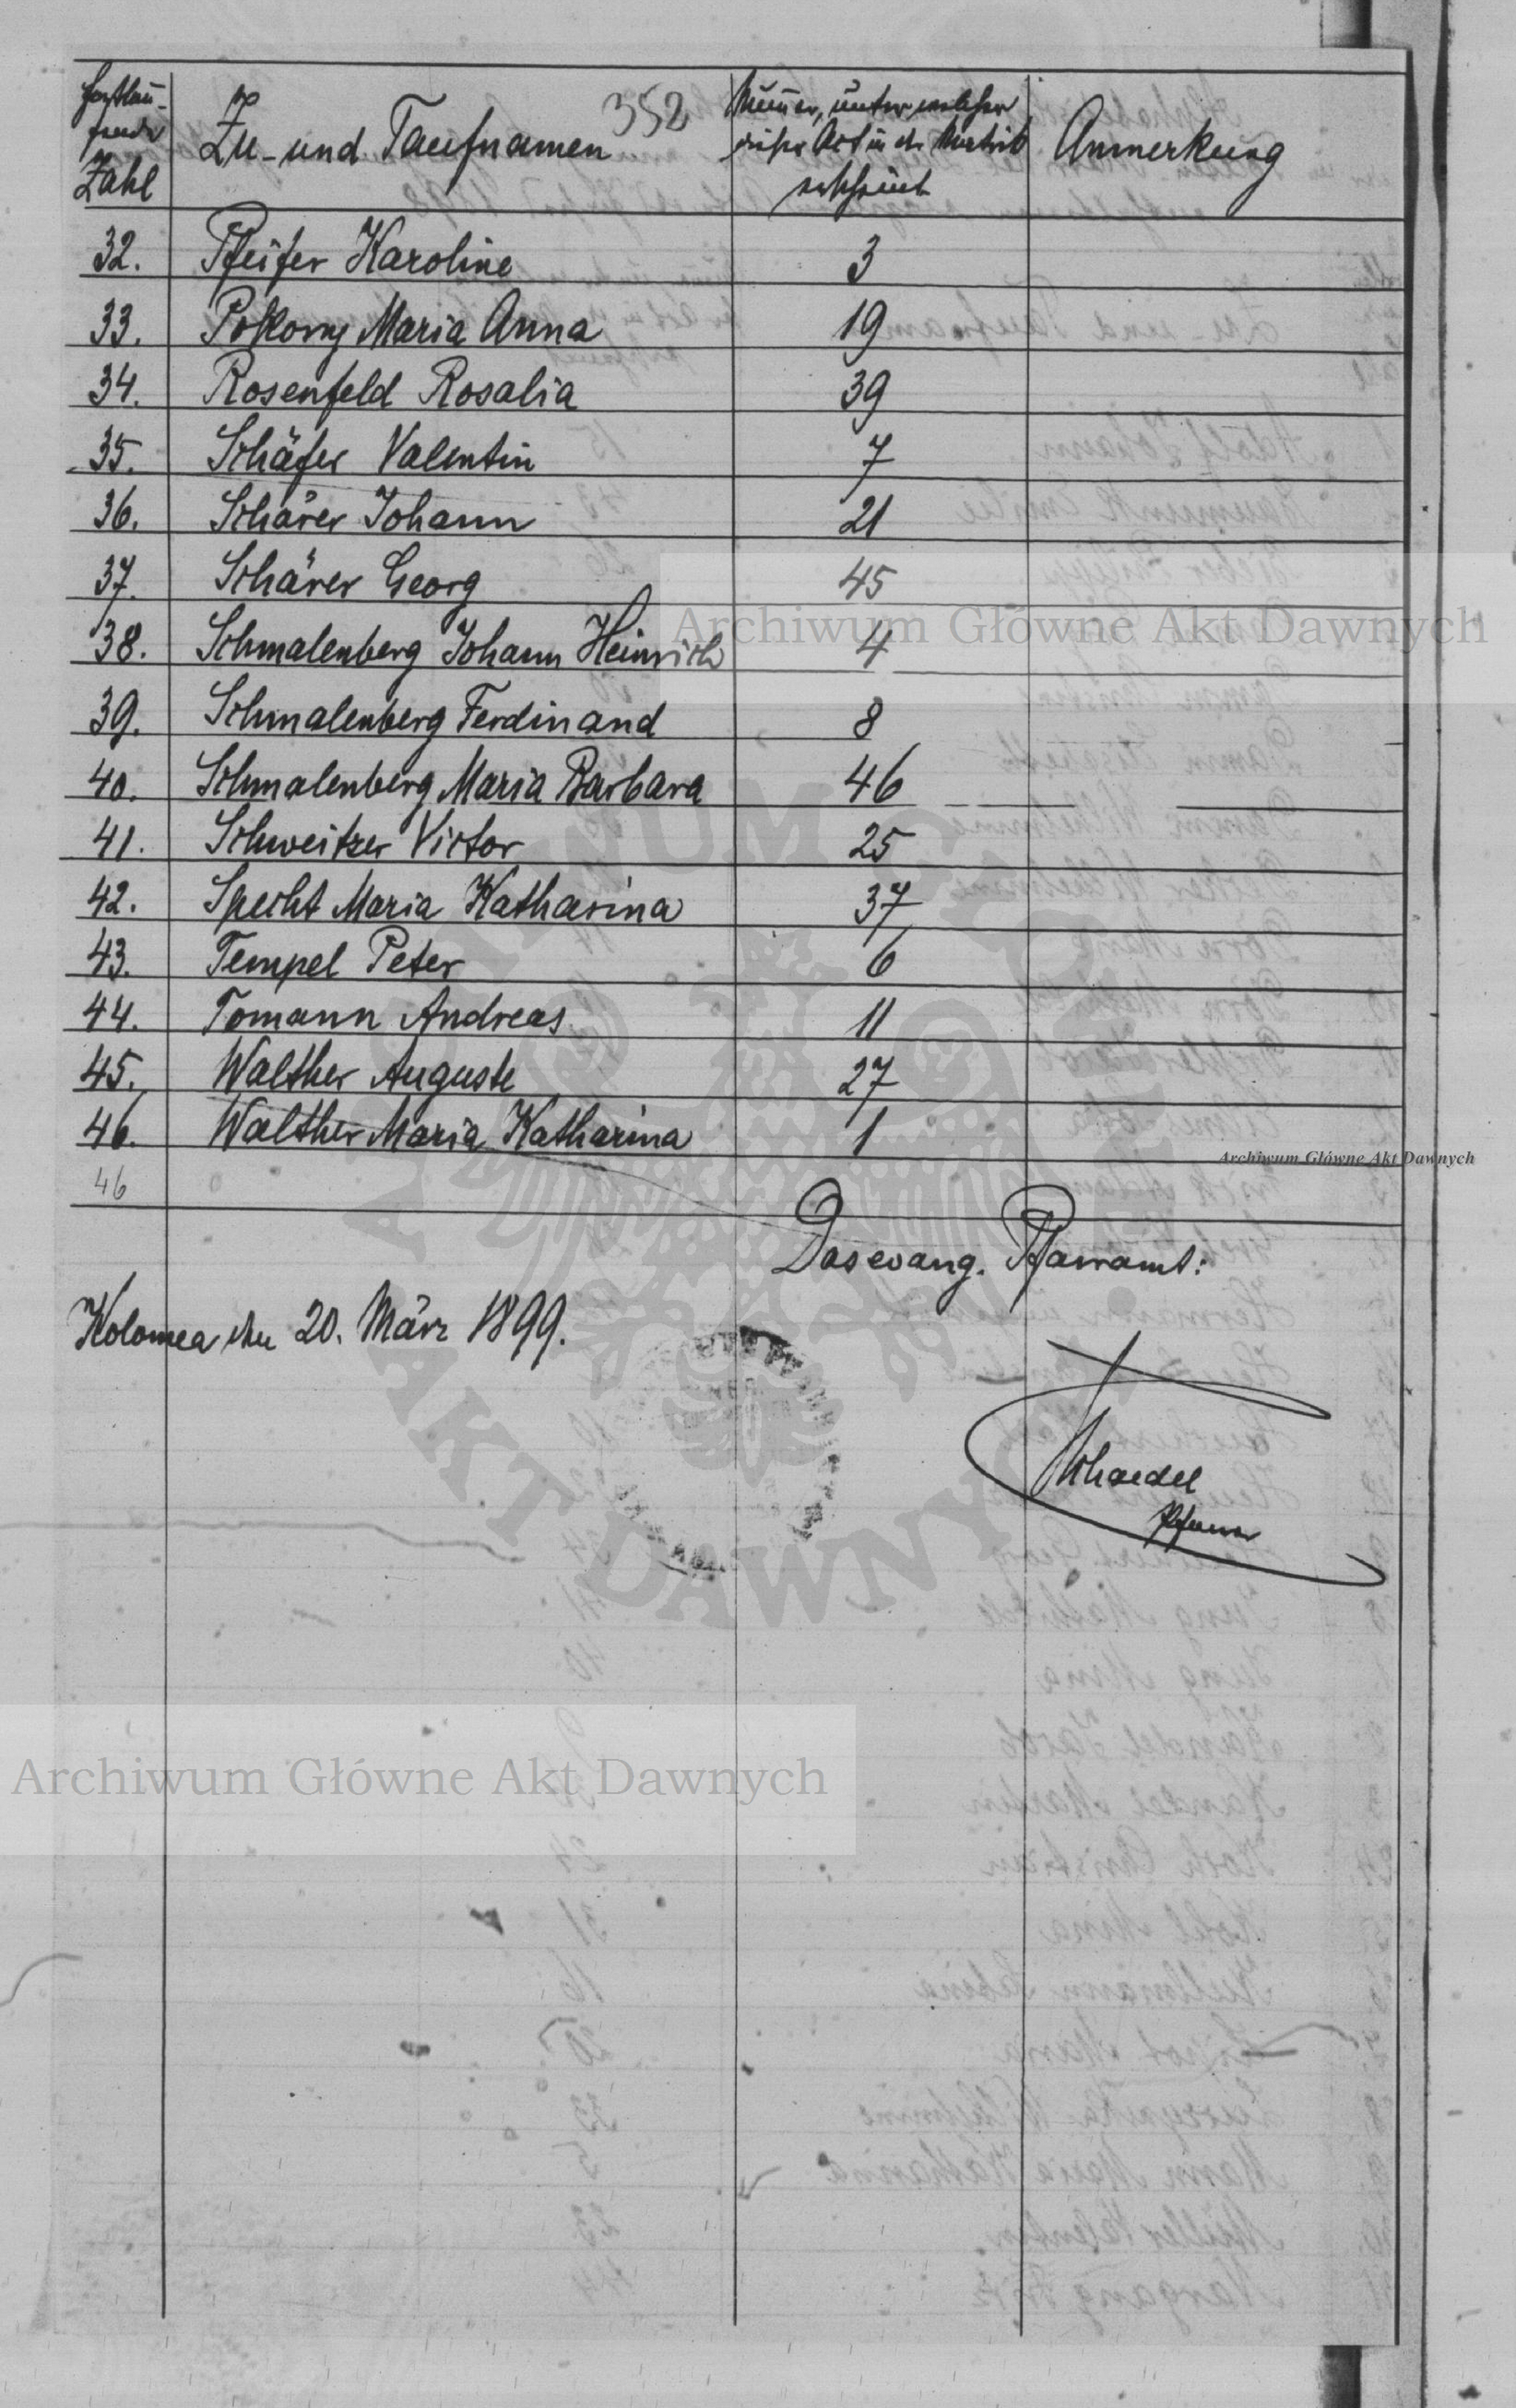 352
Fortlau-
fende
Zahl
Zu- und Taufnamen
Numer, unter welcher
dieser Act in der Matrik
erscheint
Anmerkung
32. Pfeifer Karoline 3
33. Pokorny Maria Anna 19
34. Rosenfeld Rosalia 39
35. Schäfer Valentin 7
36. Schärer Johann 21
37. Schärer Georg 45
38. Schmalenberg Johann Heinrich 4
39. Schmalenberg Ferdinand 8
40. Schmalenberg Maria Barbara 46
41. Schweitzer Victor 25
42. Specht Maria Katharina 37
43. Tempel Peter 6
44. Tomann Andreas 11
45. Walther Auguste 27
46. Walther Maria Katharina 1
46
Das evang. Pfarramt:
Kolomea den 20. März 1899.
Schaedel
Pfarrer
Archiwum Główne Akt Dawnych
Archiwum Główne Akt Dawnych
Archiwum Główne Akt Dawnych
ARCHIWUM GŁÓWNE
AKT DAWNYCH